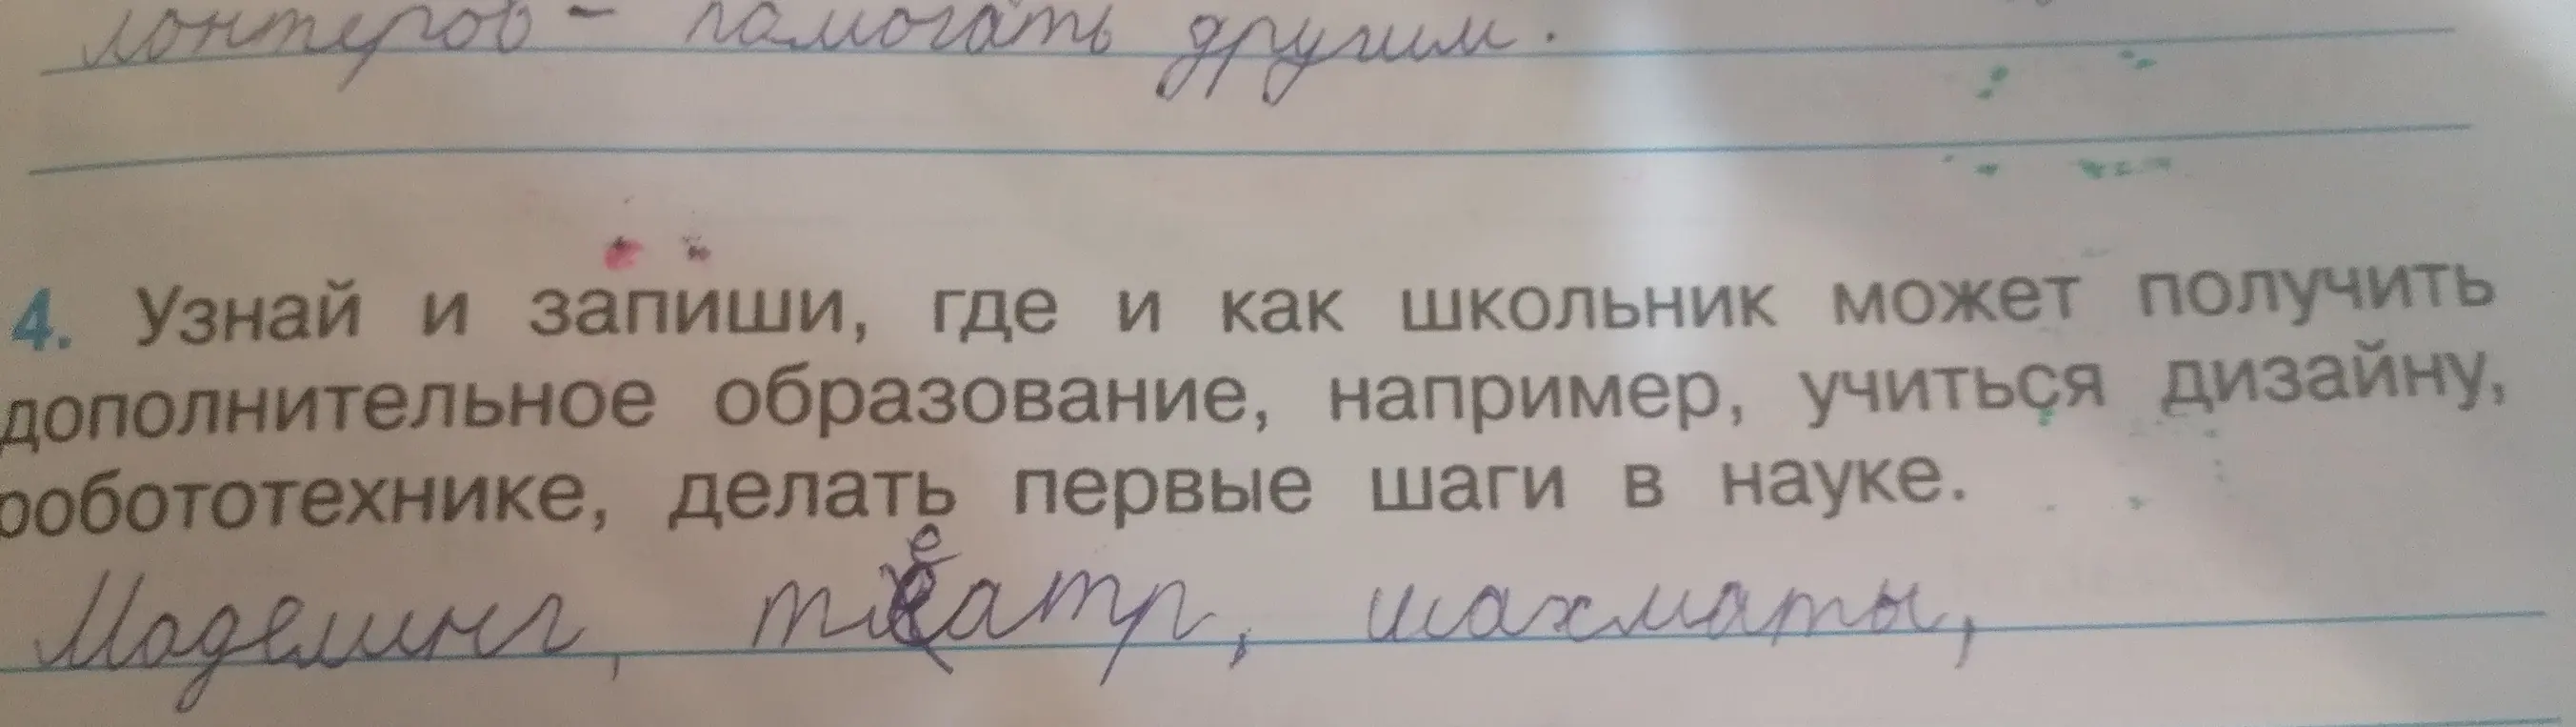 лонтеров - памогать другим.
4. Узнай и запиши, где и как школьник может получить
дополнительное образование, например, учиться дизайну,
робототехнике, делать первые шаги в науке.
Моделинг, театр, шахматы,